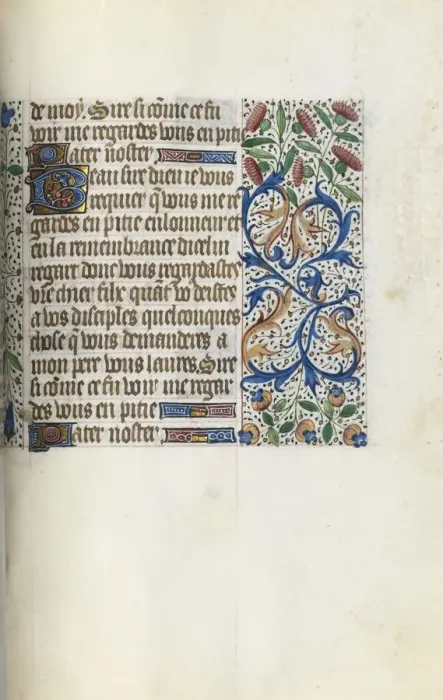 de moy. Sire si cõme ce fu
voir me regardes vous en pitie
Pater noster
Beau sire dieu ie vous
requier q̃ vous me re
gardes en pitie en lonneur et
en la remembrance dicelui
regart donc vous regardastes
vr̃e chier filz quãt
a vos disciples quelconques
chose q̃ vous demanderes a
mon pere vous laures. Sire
si cõme ce fu voir me regar
des vous en pitie
Pater noster